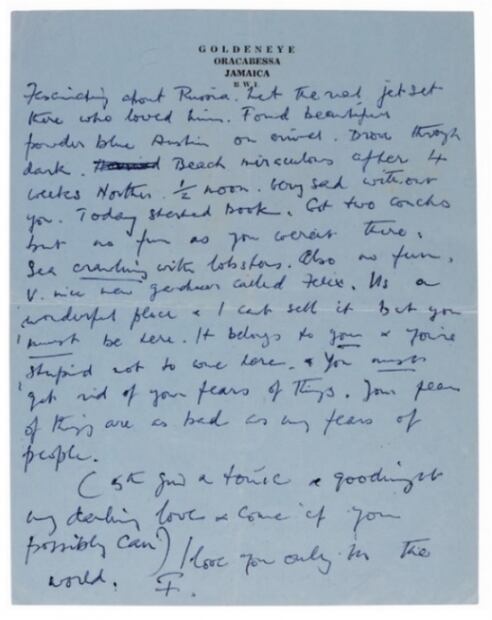 GOLDENEYE
ORACABESSA
JAMAICA
B.W.I.
Fascinating about Russia. Let the real jet set
there who loved him. Found beautiful
powder blue Austin on arrival. Drove through
dark. Beach miraculous after 4
weeks Norther. ½ moon. Very sad without
you. Today started book. Got two conchs
but no fun as you weren't there.
Sea crawling with lobsters. Also no fun.
V. nice new gardener called Felix. Its a
wonderful place & I cant sell it but you
must be here. It belongs to you & you're
stupid not to come here. & You must
get rid of your fears of things. Your fears
of things are as bad as my fears of
people.
(5th gin & tonic & goodnight
my darling love & come if you
possibly can) I love you only in the
world. F.